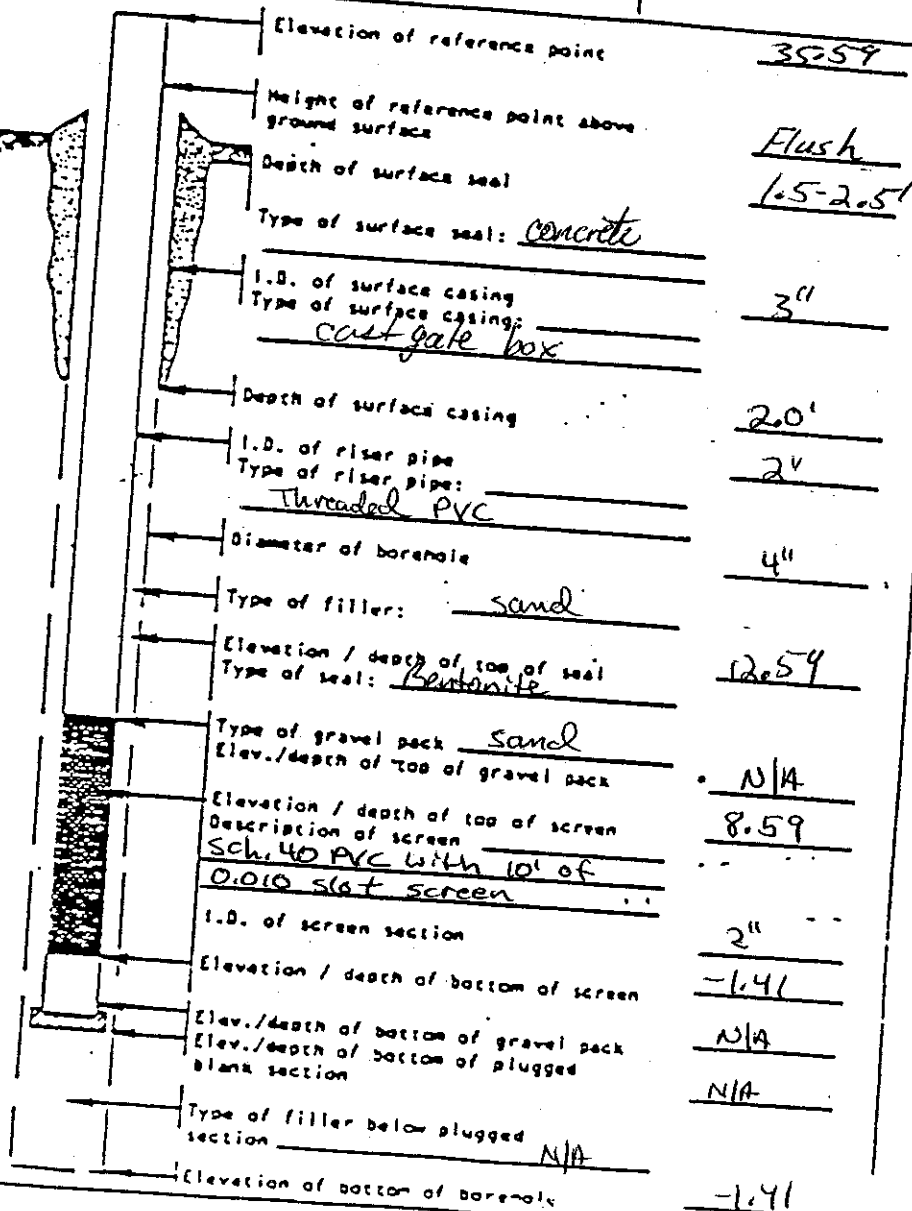 Elevation of reference point 35.59
Height of reference point above
ground surface Flush
Depth of surface seal 1.5-2.5'
Type of surface seal: concrete
I.D. of surface casing 3"
Type of surface casing:
cast gate box
Depth of surface casing 2.0'
I.D. of riser pipe 2"
Type of riser pipe:
Threaded PVC
Diameter of borehole 4"
Type of filler: sand
Elevation / depth of top of seal 12.59
Type of seal: Bentonite
Type of gravel pack sand
Elev./depth of top of gravel pack N/A
Elevation / depth of top of screen 8.59
Description of screen
Sch. 40 PVC with 10' of
0.010 slot screen
I.D. of screen section 2"
Elevation / depth of bottom of screen -1.41
Elev./depth of bottom of gravel pack N/A
Elev./depth of bottom of plugged
blank section N/A
Type of filler below plugged
section N/A
Elevation of bottom of borehole -1.41